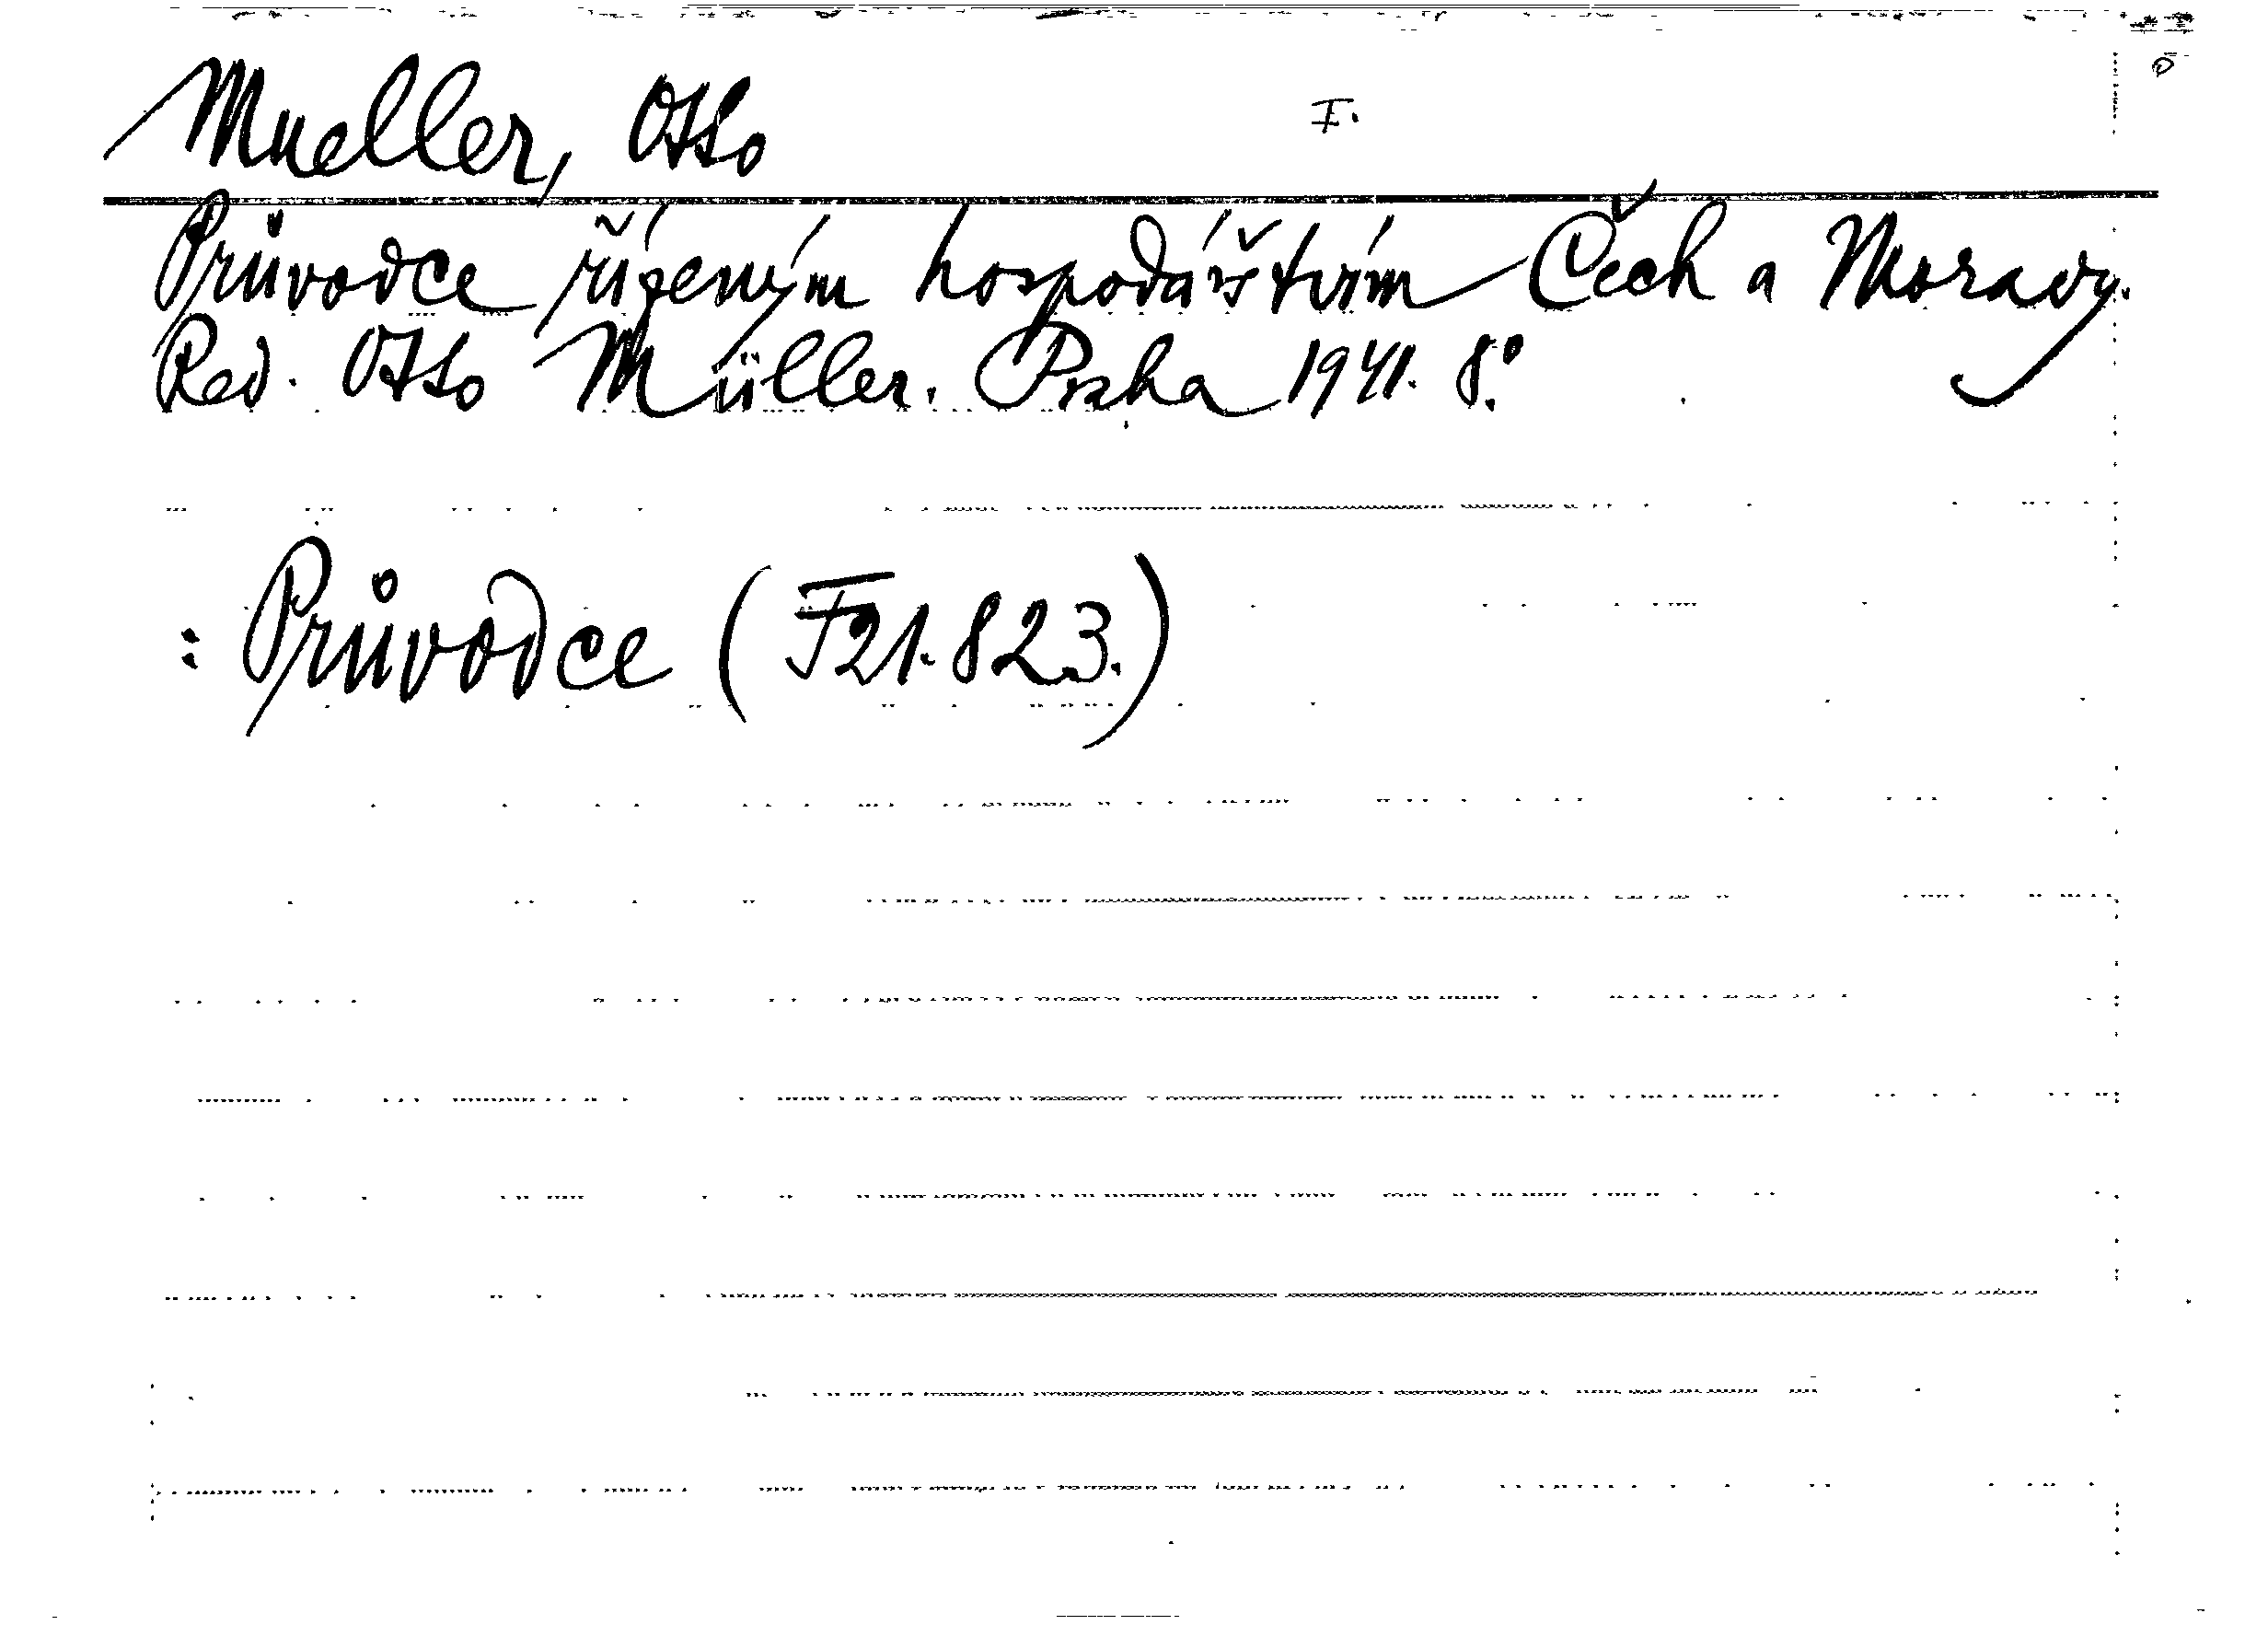 Mueller, Otto I.
Průvodce řízeným hospodářstvím Čech a Moravy.
Red. Otto Müller. Praha 1941. 8°.
: Průvodce (F 21.823.)